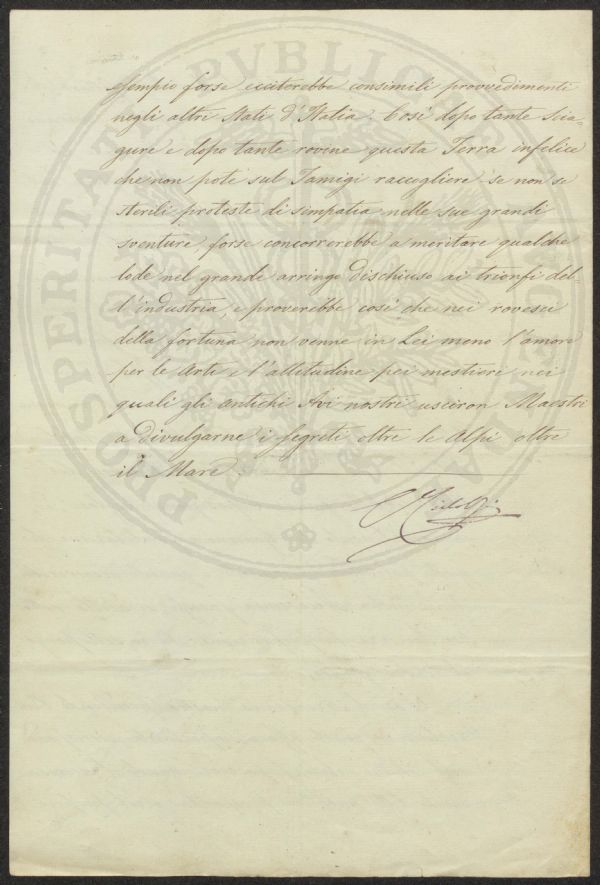 esempio forse ecciterebbe consimili provvedimenti
negli altri Stati d'Italia. Così dopo tante scia-
gure e dopo tante rovine questa Terra infelice
che non poté sul Tamigi raccogliere se non se
sterili proteste di simpatia nelle sue grandi
sventure forse concorrerebbe a meritare qualche
lode nel grande arringo dischiuso ai trionfi del-
l'industria, e proverebbe così che nei rovesci
della fortuna non venne in Lei meno l'amore
per le Arti e l'attitudine pei mestieri nei
quali gli antichi Avi nostri usciron Maestri
a divulgarne i segreti oltre le Alpi oltre
il Mare.
PROSPERITATI PVBLICAE